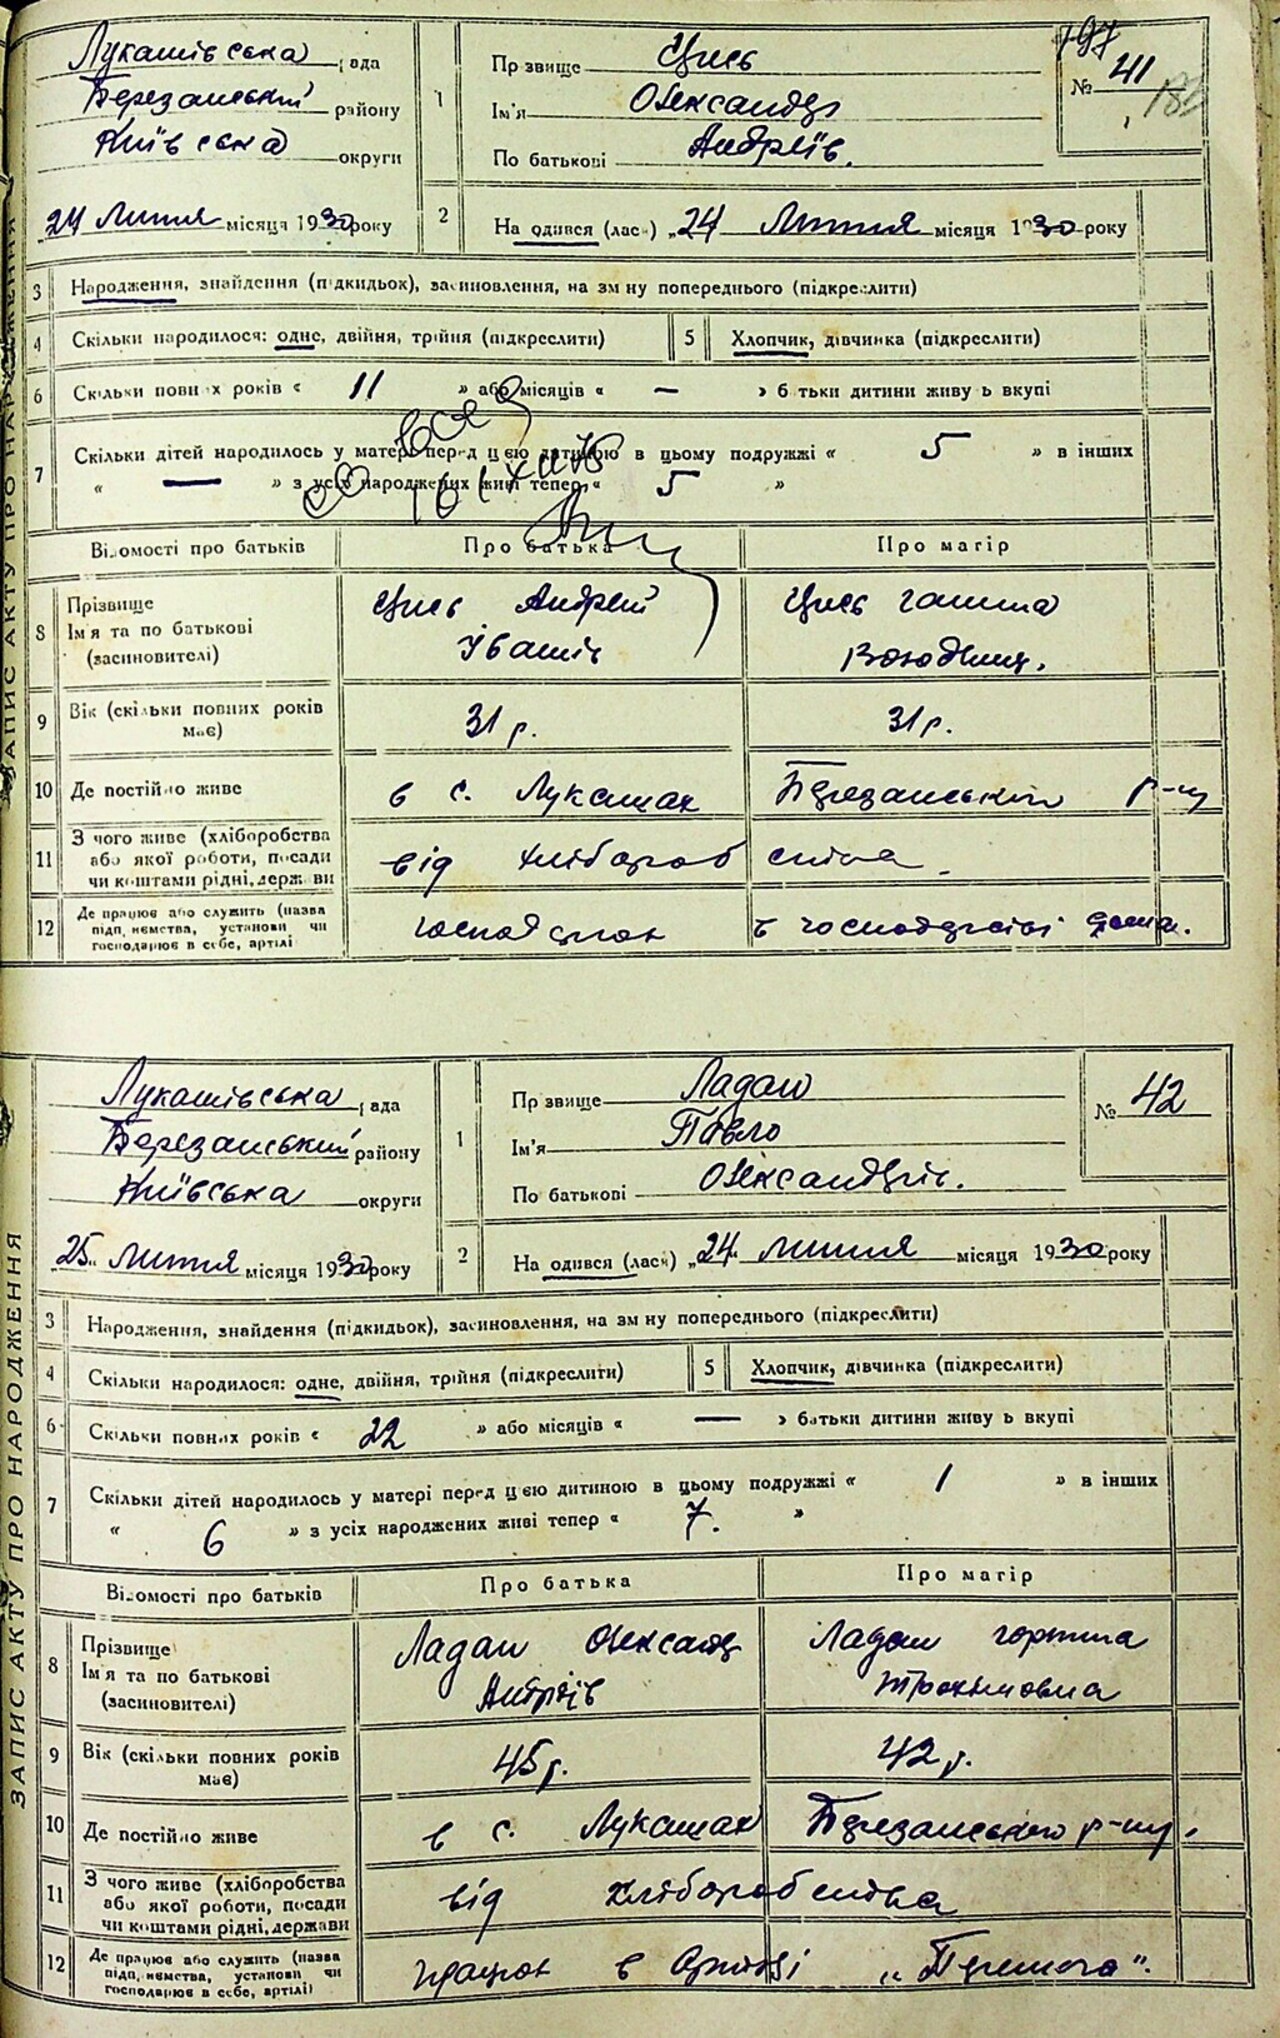 ЗАПИС АКТУ ПРО НАРОДЖЕННЯ
Лукашівська рада
Березанський району
Київська округи
24 Липня місяця 1930 року
1
Прізвище Цись
Ім'я Олександр
По батькові Андріїв.
№ 41
197
2
Народився (лась) „24 Липня місяця 1930 року
3 Народження, знайдення (підкидьок), засиновлення, на зміну попереднього (підкреслити)
4 Скільки народилося: одне, двійня, трійня (підкреслити)
5 Хлопчик, дівчинка (підкреслити)
6 Скільки повних років « 11 » або місяців « — » батьки дитини живуть вкупі
7 Скільки дітей народилось у матері перед цією дитиною в цьому подружжі « 5 » в інших
« — » з усіх народжених живі тепер « 5 »
Відомості про батьків Про батька Про матір
8 Прізвище
Ім'я та по батькові
(засиновителі)
Цись Андрій
Іванів
Цись Ганна
9 Вік (скільки повних років
має)
31 р. 31 р.
10 Де постійно живе в с. Лукашах Березанського р-ну
11 З чого живе (хліборобства
або якої роботи, посади
чи коштами рідні, держави
від хліборобства.
12 Де працює або служить (назва
підприємства, установи чи
господарює в себе, артілі
в господарстві
ЗАПИС АКТУ ПРО НАРОДЖЕННЯ
Лукашівська рада
Березанський району
Київська округи
25 Липня місяця 1930 року
1
Прізвище Ладан
Ім'я Павло
По батькові Олександрів.
№ 42
2
Народився (лась) „24 Липня місяця 1930 року
3 Народження, знайдення (підкидьок), засиновлення, на зміну попереднього (підкреслити)
4 Скільки народилося: одне, двійня, трійня (підкреслити)
5 Хлопчик, дівчинка (підкреслити)
6 Скільки повних років « 22 » або місяців « — » батьки дитини живуть вкупі
7 Скільки дітей народилось у матері перед цією дитиною в цьому подружжі « 1 » в інших
« 6 » з усіх народжених живі тепер « 7. »
Відомості про батьків Про батька Про матір
8 Прізвище
Ім'я та по батькові
(засиновителі)
Ладан Олександр
Андріїв
Ладан Горпина
Трохимовна
9 Вік (скільки повних років
має)
45 р. 42 р.
10 Де постійно живе в с. Лукашах Березанського р-ну,
11 З чого живе (хліборобства
або якої роботи, посади
чи коштами рідні, держави
від хліборобства
12 Де працює або служить (назва
підприємства, установи чи
господарює в себе, артілі)
в Артілі „Перемога".